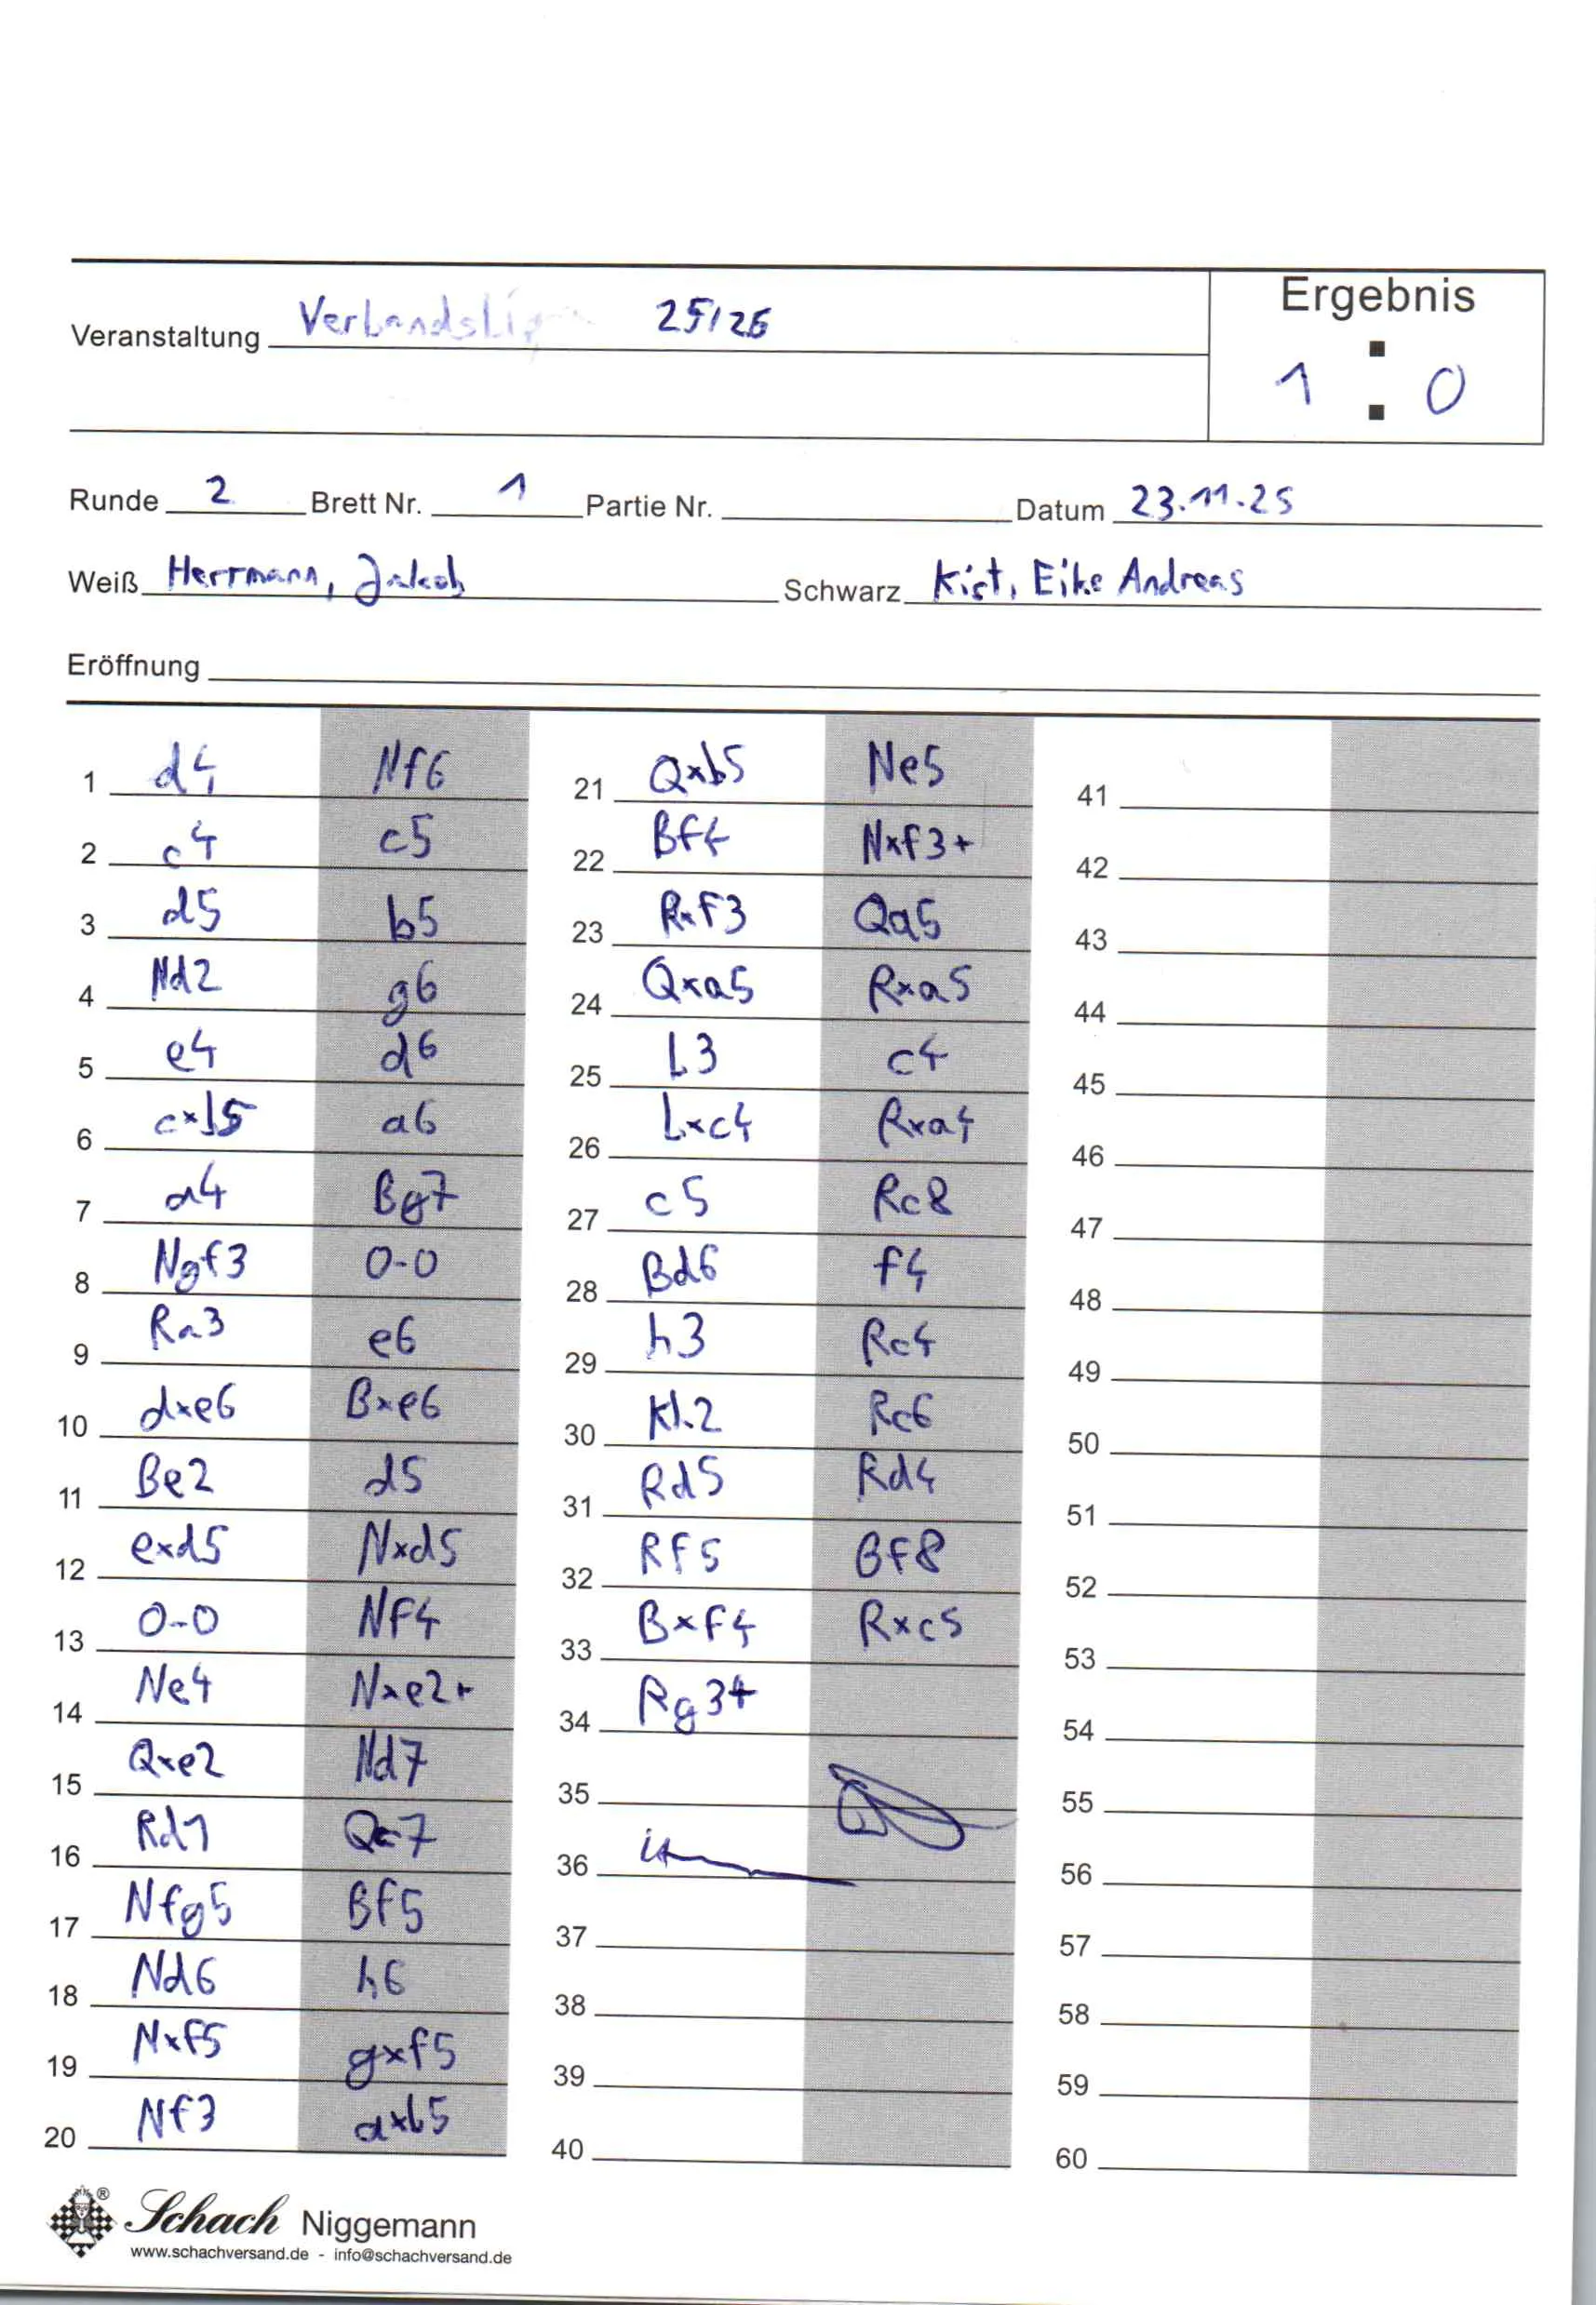 Ergebnis
Veranstaltung 25/26
1 : 0
Runde 2 Brett Nr. 1 Partie Nr. Datum 23.11.25
Weiß Herrmann, Jakob Schwarz Kist, Eike Andreas
Eröffnung
1 d4 Nf6
2 c4 c5
3 d5 b5
4 Nd2 g6
5 e4 d6
6 cxb5 a6
7 a4 Bg7
8 Ngf3 0-0
9 Ra3 e6
10 dxe6 Bxe6
11 Be2 d5
12 exd5 Nxd5
13 0-0 Nf4
14 Ne4 Nxe2+
15 Qxe2 Nd7
16 Rd1 Qc7
17 Nfg5 Bf5
18 Nd6 h6
19 Nxf5 gxf5
20 Nf3 axb5
21 Qxb5 Ne5
22 Bf4 Nxf3+
23 Rxf3 Qa5
24 Qxa5 Rxa5
25 b3 c4
26 bxc4 Rxa4
27 c5 Rc8
28 Bd6 f4
29 h3 Rc4
30 Kh2 Rc6
31 Rd5 Rd4
32 Rf5 Bf8
33 Bxf4 Rxc5
34 Rg3+
35
36
37
38
39
40
41
42
43
44
45
46
47
48
49
50
51
52
53
54
55
56
57
58
59
60
® Schach Niggemann
www.schachversand.de - info@schachversand.de